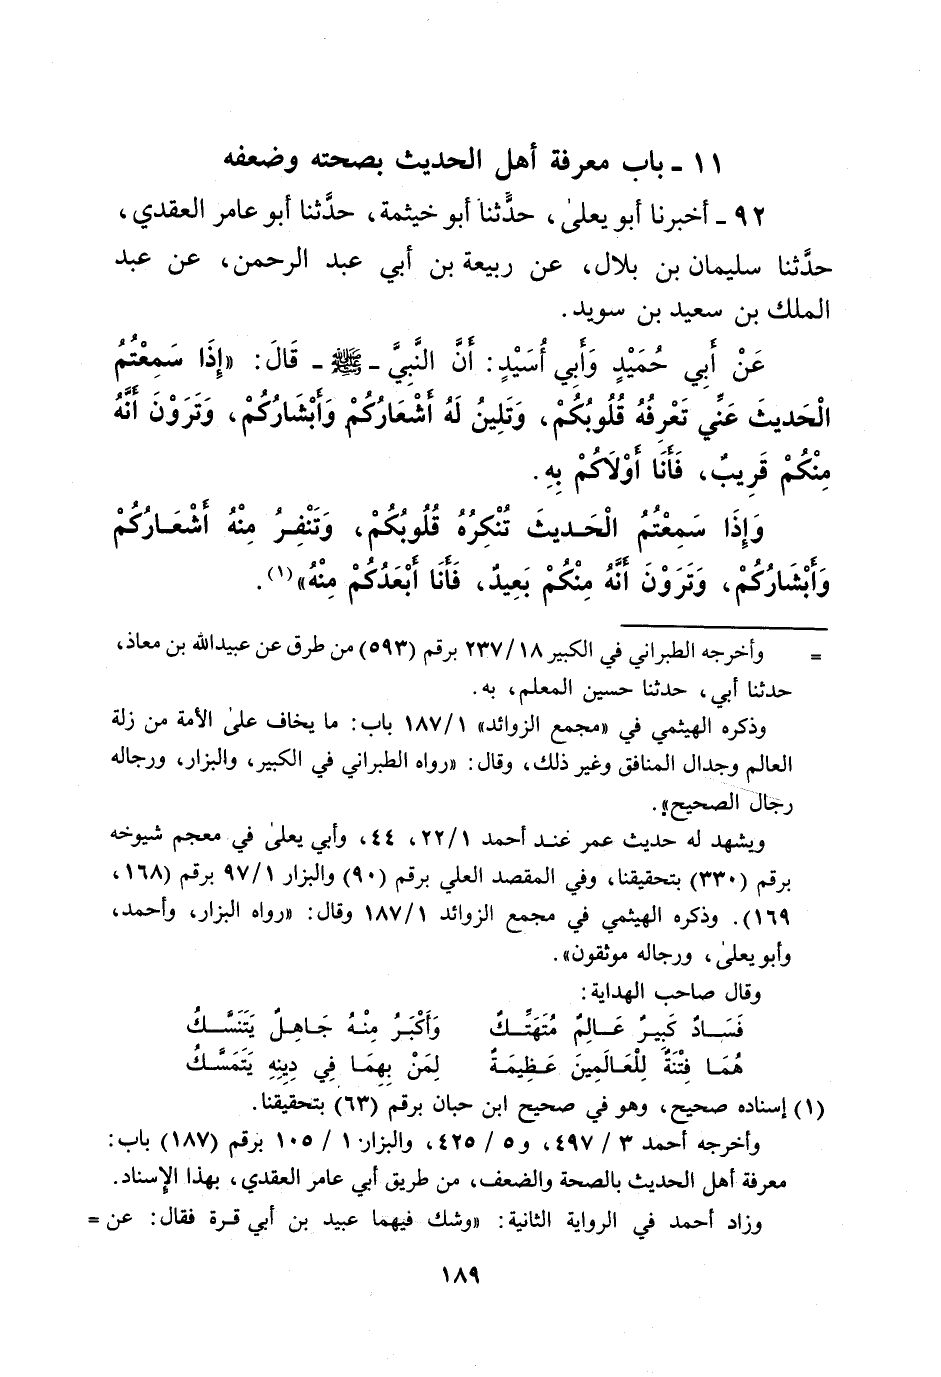 ١١ - باب معرفة أهل الحديث بصحته وضعفه
٩٢ - أخبرنا أبو يعلىٰ، حدَّثنا أبو خيثمة، حدَّثنا أبو عامر العقدي،
حدَّثنا سليمان بن بلال، عن ربيعة بن أبي عبد الرحمن، عن عبد
الملك بن سعيد بن سويد.
عَنْ أَبِي حُمَيْدٍ وَأَبِي أُسَيْدٍ: أَنَّ النَّبِيَّ - ﷺ - قَالَ: «إِذَا سَمِعْتُمُ
الْحَديثَ عَنِّي تَعْرِفُهُ قُلُوبُكُمْ، وَتَلِينُ لَهُ أَشْعَارُكُمْ وَأَبْشَارُكُمْ، وَتَرَوْنَ أَنَّهُ
مِنْكُمْ قَرِيبٌ، فَأَنَا أَوْلَاكُمْ بِهِ.
وَإِذَا سَمِعْتُمُ الْحَديثَ تُنْكِرُهُ قُلُوبُكُمْ، وَتَنْفِرُ مِنْهُ أَشْعَارُكُمْ
وَأَبْشَارُكُمْ، وَتَرَوْنَ أَنَّهُ مِنْكُمْ بَعِيدٌ، فَأَنَا أَبْعَدُكُمْ مِنْهُ»(١).
= وأخرجه الطبراني في الكبير ٢٣٧/١٨ برقم (٥٩٣) من طرق عن عبيدالله بن معاذ،
حدثنا أبي، حدثنا حسين المعلم، به.
وذكره الهيثمي في «مجمع الزوائد» ١٨٧/١ باب: ما يخاف علىٰ الأمة من زلة
العالم وجدال المنافق وغير ذلك، وقال: «رواه الطبراني في الكبير، والبزار، ورجاله
رجال الصحيح».
ويشهد له حديث عمر عند أحمد ٢٢/١، ٤٤، وأبي يعلىٰ في معجم شيوخه
برقم (٣٣٠) بتحقيقنا، وفي المقصد العلي برقم (٩٠) والبزار ٩٧/١ برقم (١٦٨،
١٦٩). وذكره الهيثمي في مجمع الزوائد ١٨٧/١ وقال: «رواه البزار، وأحمد،
وأبو يعلىٰ، ورجاله موثقون».
وقال صاحب الهداية:
فَسَادٌ كَبِيرٌ عَالِمٌ مُتَهَتِّكُ وَأَكْبَرُ مِنْهُ جَاهِلٌ يَتَنَسَّكُ
هُمَا فِتْنَةٌ لِلْعَالَمِينَ عَظِيمَةٌ لِمَنْ بِهِمَا فِي دِينِهِ يَتَمَسَّكُ
(١) إسناده صحيح، وهو في صحيح ابن حبان برقم (٦٣) بتحقيقنا.
وأخرجه أحمد ٣ / ٤٩٧، و٥ / ٤٢٥، والبزار ١ / ١٠٥ برقم (١٨٧) باب:
معرفة أهل الحديث بالصحة والضعف، من طريق أبي عامر العقدي، بهذا الإسناد.
وزاد أحمد في الرواية الثانية: «وشك فيهما عبيد بن أبي قرة فقال: عن =
١٨٩